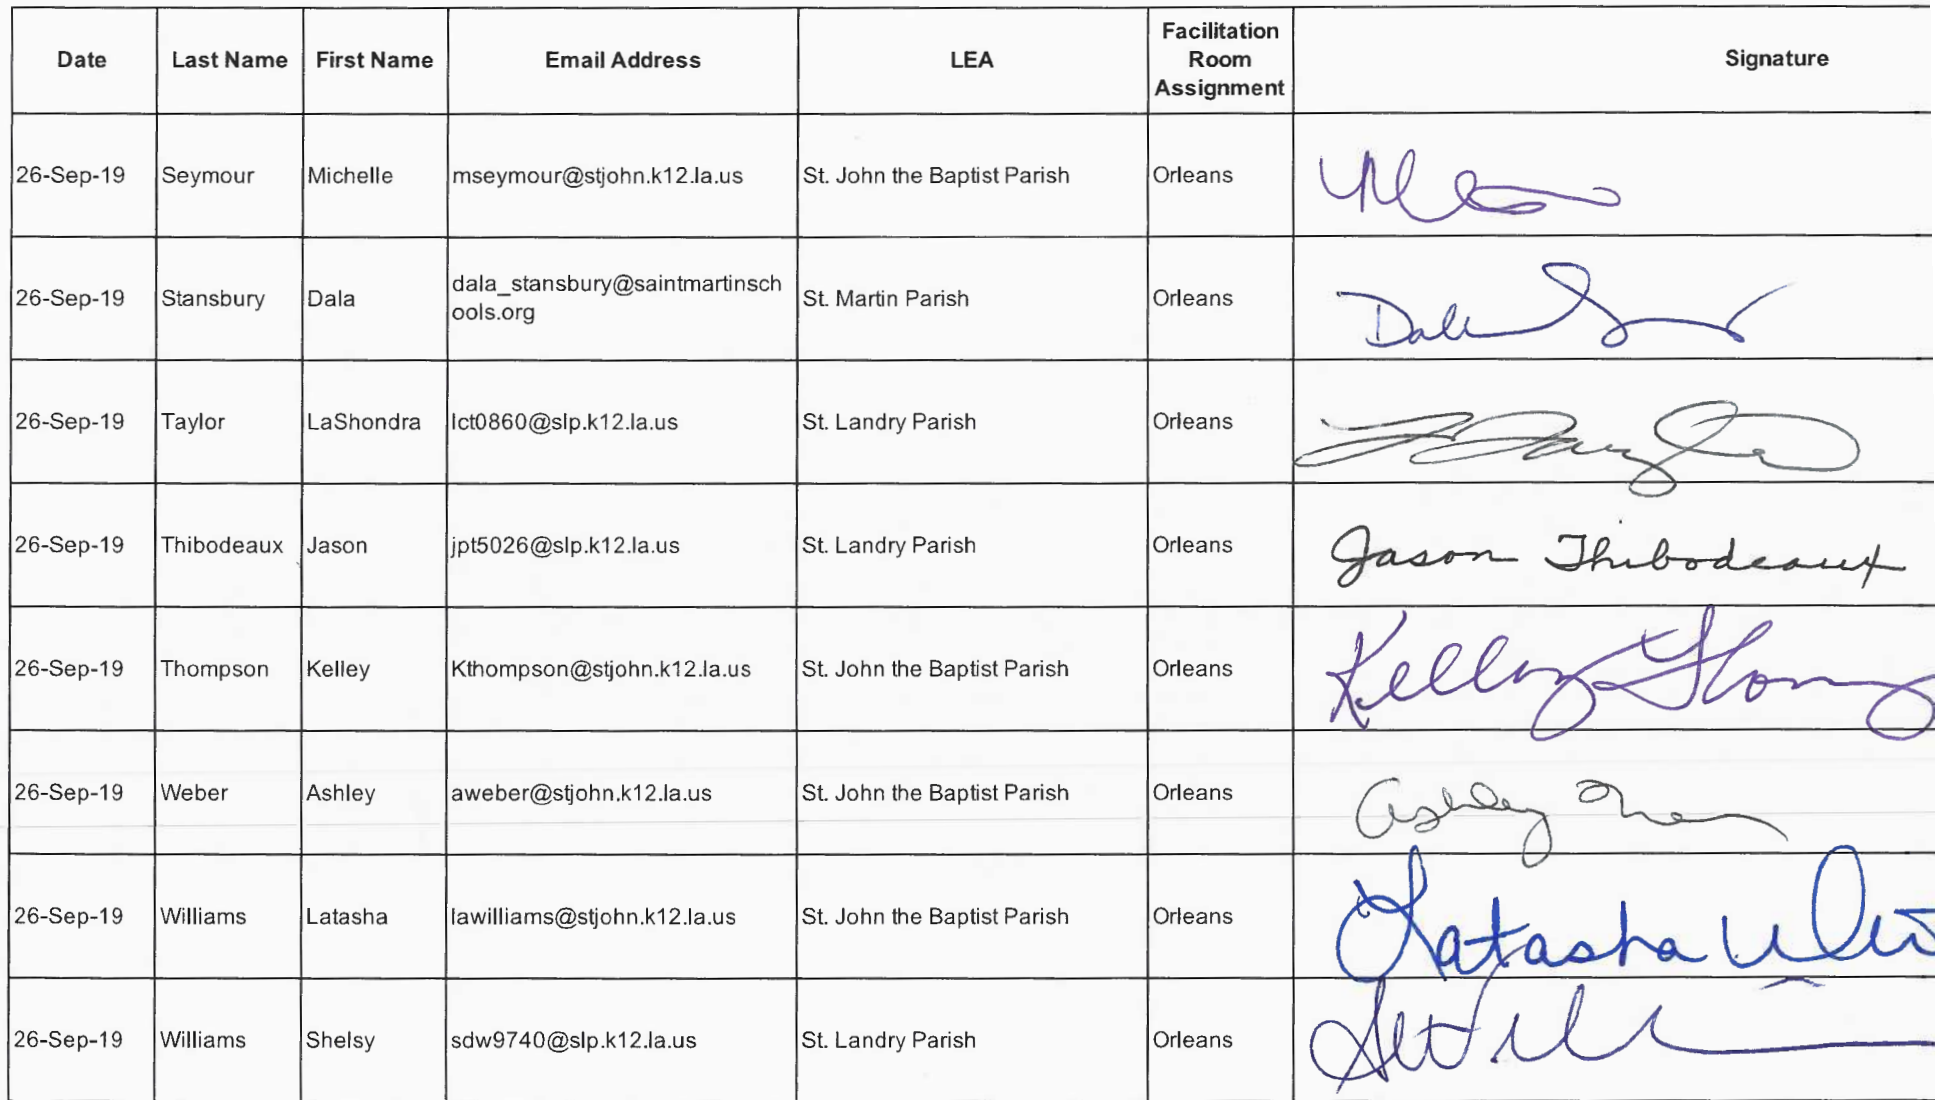 Date Last Name First Name Email Address LEA Facilitation Room Assignment Signature
26-Sep-19 Seymour Michelle mseymour@stjohn.k12.la.us St. John the Baptist Parish Orleans
26-Sep-19 Stansbury Dala dala_stansbury@saintmartinsch
ools.org St. Martin Parish Orleans Dala
26-Sep-19 Taylor LaShondra lct0860@slp.k12.la.us St. Landry Parish Orleans
26-Sep-19 Thibodeaux Jason jpt5026@slp.k12.la.us St. Landry Parish Orleans Jason Thibodeaux
26-Sep-19 Thompson Kelley Kthompson@stjohn.k12.la.us St. John the Baptist Parish Orleans Kelley
26-Sep-19 Weber Ashley aweber@stjohn.k12.la.us St. John the Baptist Parish Orleans Ashley
26-Sep-19 Williams Latasha lawilliams@stjohn.k12.la.us St. John the Baptist Parish Orleans Latasha
26-Sep-19 Williams Shelsy sdw9740@slp.k12.la.us St. Landry Parish Orleans